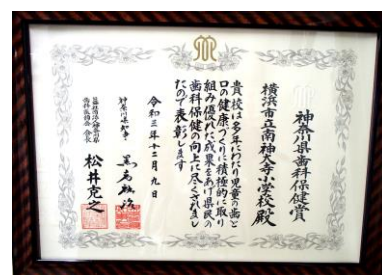 神奈川県歯科保健賞
横浜市立南神大寺小学校殿
貴校は多年にわたり児童の歯と
口の健康づくりに積極的に取り
組み優れた成果をあげ県民の
歯科保健の向上に尽くされまし
たので表彰します
令和三年十二月九日
神奈川県知事 黒岩祐治
会長 松井克之